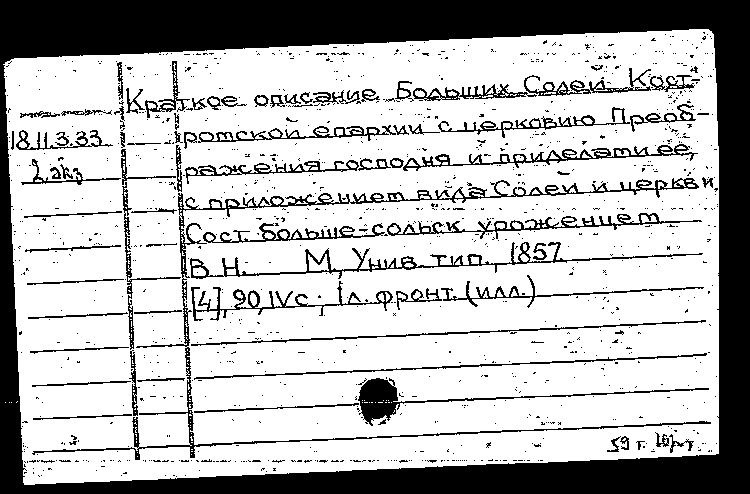 Краткое описание Больших Солей Кост-
18.11.3.33 ромской епархии с церковию Преоб-
2 экз ражения господня и приделами ее,
с приложением вида Солей и церкви.
Сост. больше-сольск. уроженцем
В.Н. М, Унив. тип., 1857.
[4], 90, IV с; 1 л. фронт. (илл.)
59 г.